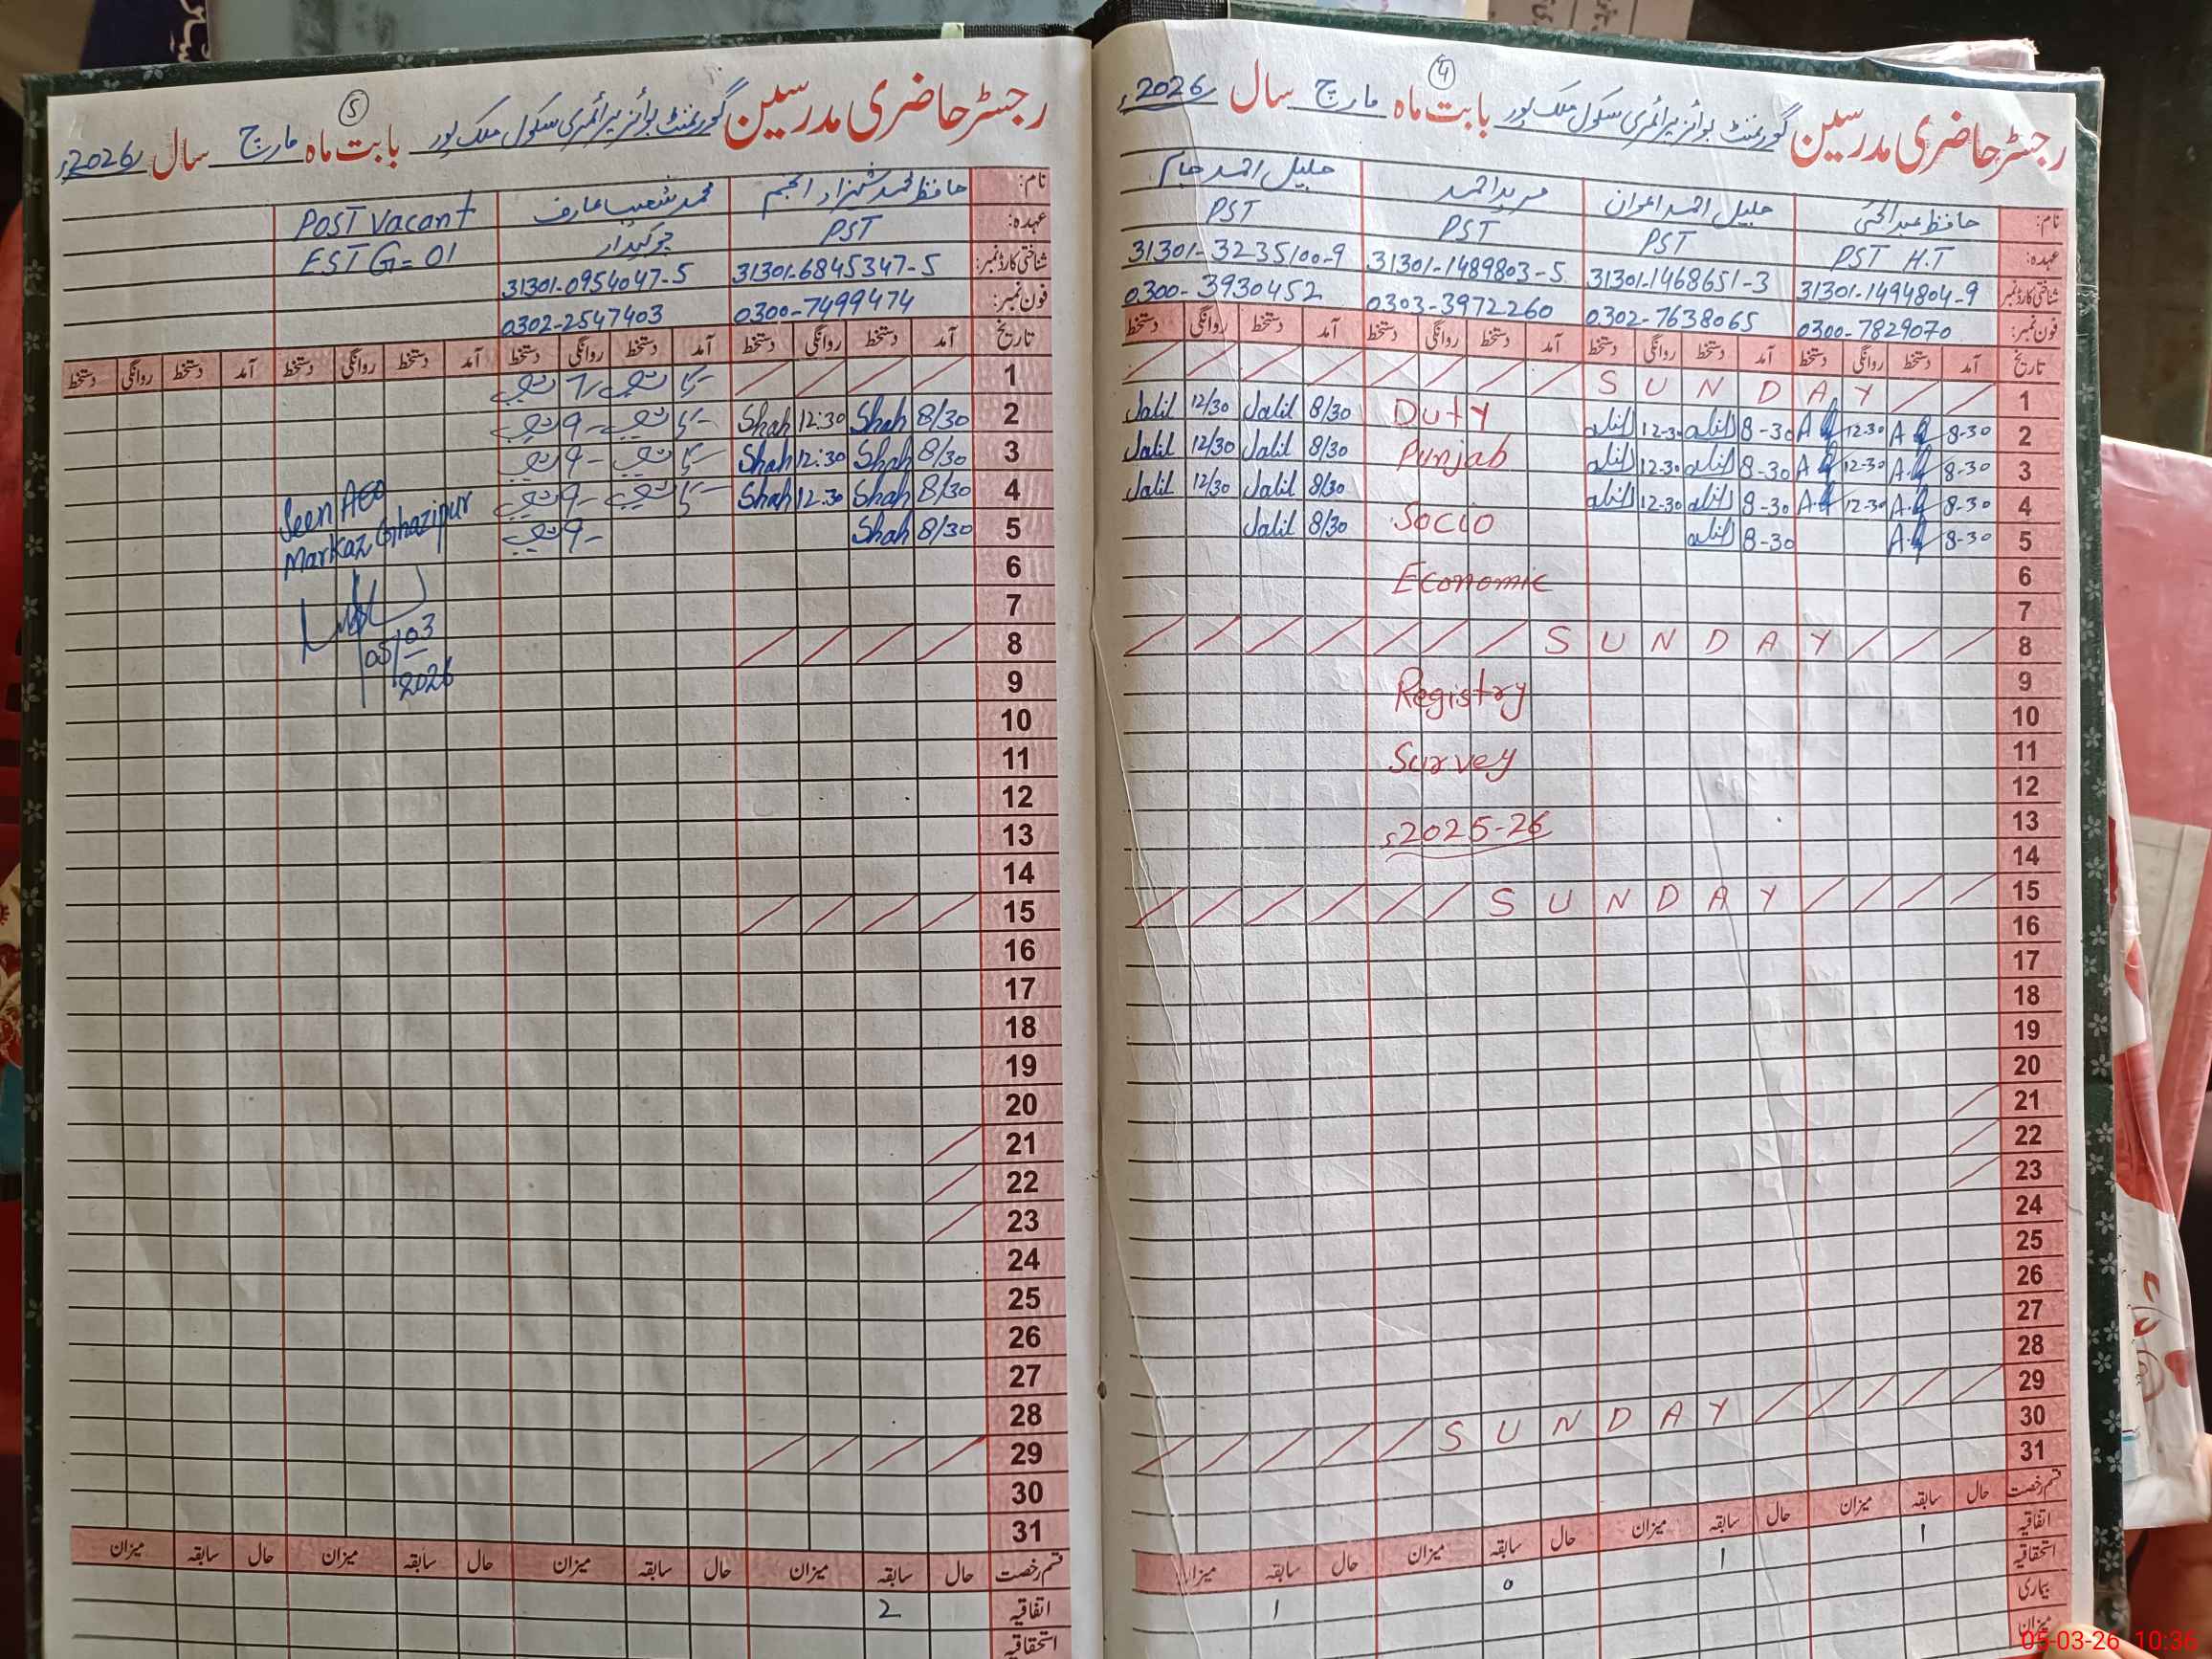 رجسٹر حاضری مدرسین گورنمنٹ بوائز پرائمری سکول ملک پور بابت ماہ مارچ سال 2026ء
4
نام: حافظ عبدالحئی جلیل احمد اعوان مرید احمد جلیل احمد جام
عہدہ: PST H.T PST PST PST
شناختی کارڈ نمبر 31301-1494804-9 31301-1468651-3 31301-1489803-5 31301-3235100-9
فون نمبر: 0300-7829070 0302-7638065 0303-3972260 0300-3930452
تاریخ آمد دستخط روانگی دستخط آمد دستخط روانگی دستخط آمد دستخط روانگی دستخط آمد دستخط روانگی دستخط
1 SUNDAY
2 8-30 A 12-30 A 8-30 12-30 Duty 8/30 Jalil 12/30 Jalil
3 8-30 A 12-30 A 8-30 12-30 Punjab 8/30 Jalil 12/30 Jalil
4 8-30 A 12-30 A 8-30 12-30 8/30 Jalil 12/30 Jalil
5 8-30 A 8-30 Socio 8/30 Jalil
6 Economic
7
8 SUNDAY
9 Registry
10
11 Survey
12
13 2025-26ء
14
15 SUNDAY
16
17
18
19
20
21
22
23
24
25
26
27
28
29 SUNDAY
30
31
قسم رخصت حال سابقہ میزان حال سابقہ میزان حال سابقہ میزان حال سابقہ میزان
اتفاقیہ 1 1 0 1
استحقاقیہ
بیماری
میزان
رجسٹر حاضری مدرسین گورنمنٹ بوائز پرائمری سکول ملک پور بابت ماہ مارچ سال 2026ء
5
نام: حافظ محمد شہزاد انجم محمد شعیب عارف Post Vacant
عہدہ: PST چوکیدار EST G=01
شناختی کارڈ نمبر: 31301-6845347-5 31301-0954047-5
فون نمبر: 0300-7499474 0302-2547403
تاریخ آمد دستخط روانگی دستخط آمد دستخط روانگی دستخط آمد دستخط روانگی دستخط آمد دستخط روانگی دستخط
1
2 8/30 Shah 12:30 Shah
3 8/30 Shah 12:30 Shah
4 8/30 Shah 12:30 Shah
5 8/30 Shah
Seen AEO
Markaz Ghazipur
05/03
2026
6
7
8
9
10
11
12
13
14
15
16
17
18
19
20
21
22
23
24
25
26
27
28
29
30
31
قسم رخصت حال سابقہ میزان حال سابقہ میزان حال سابقہ میزان حال سابقہ میزان
اتفاقیہ 2
استحقاقیہ
05-03-26 10:36